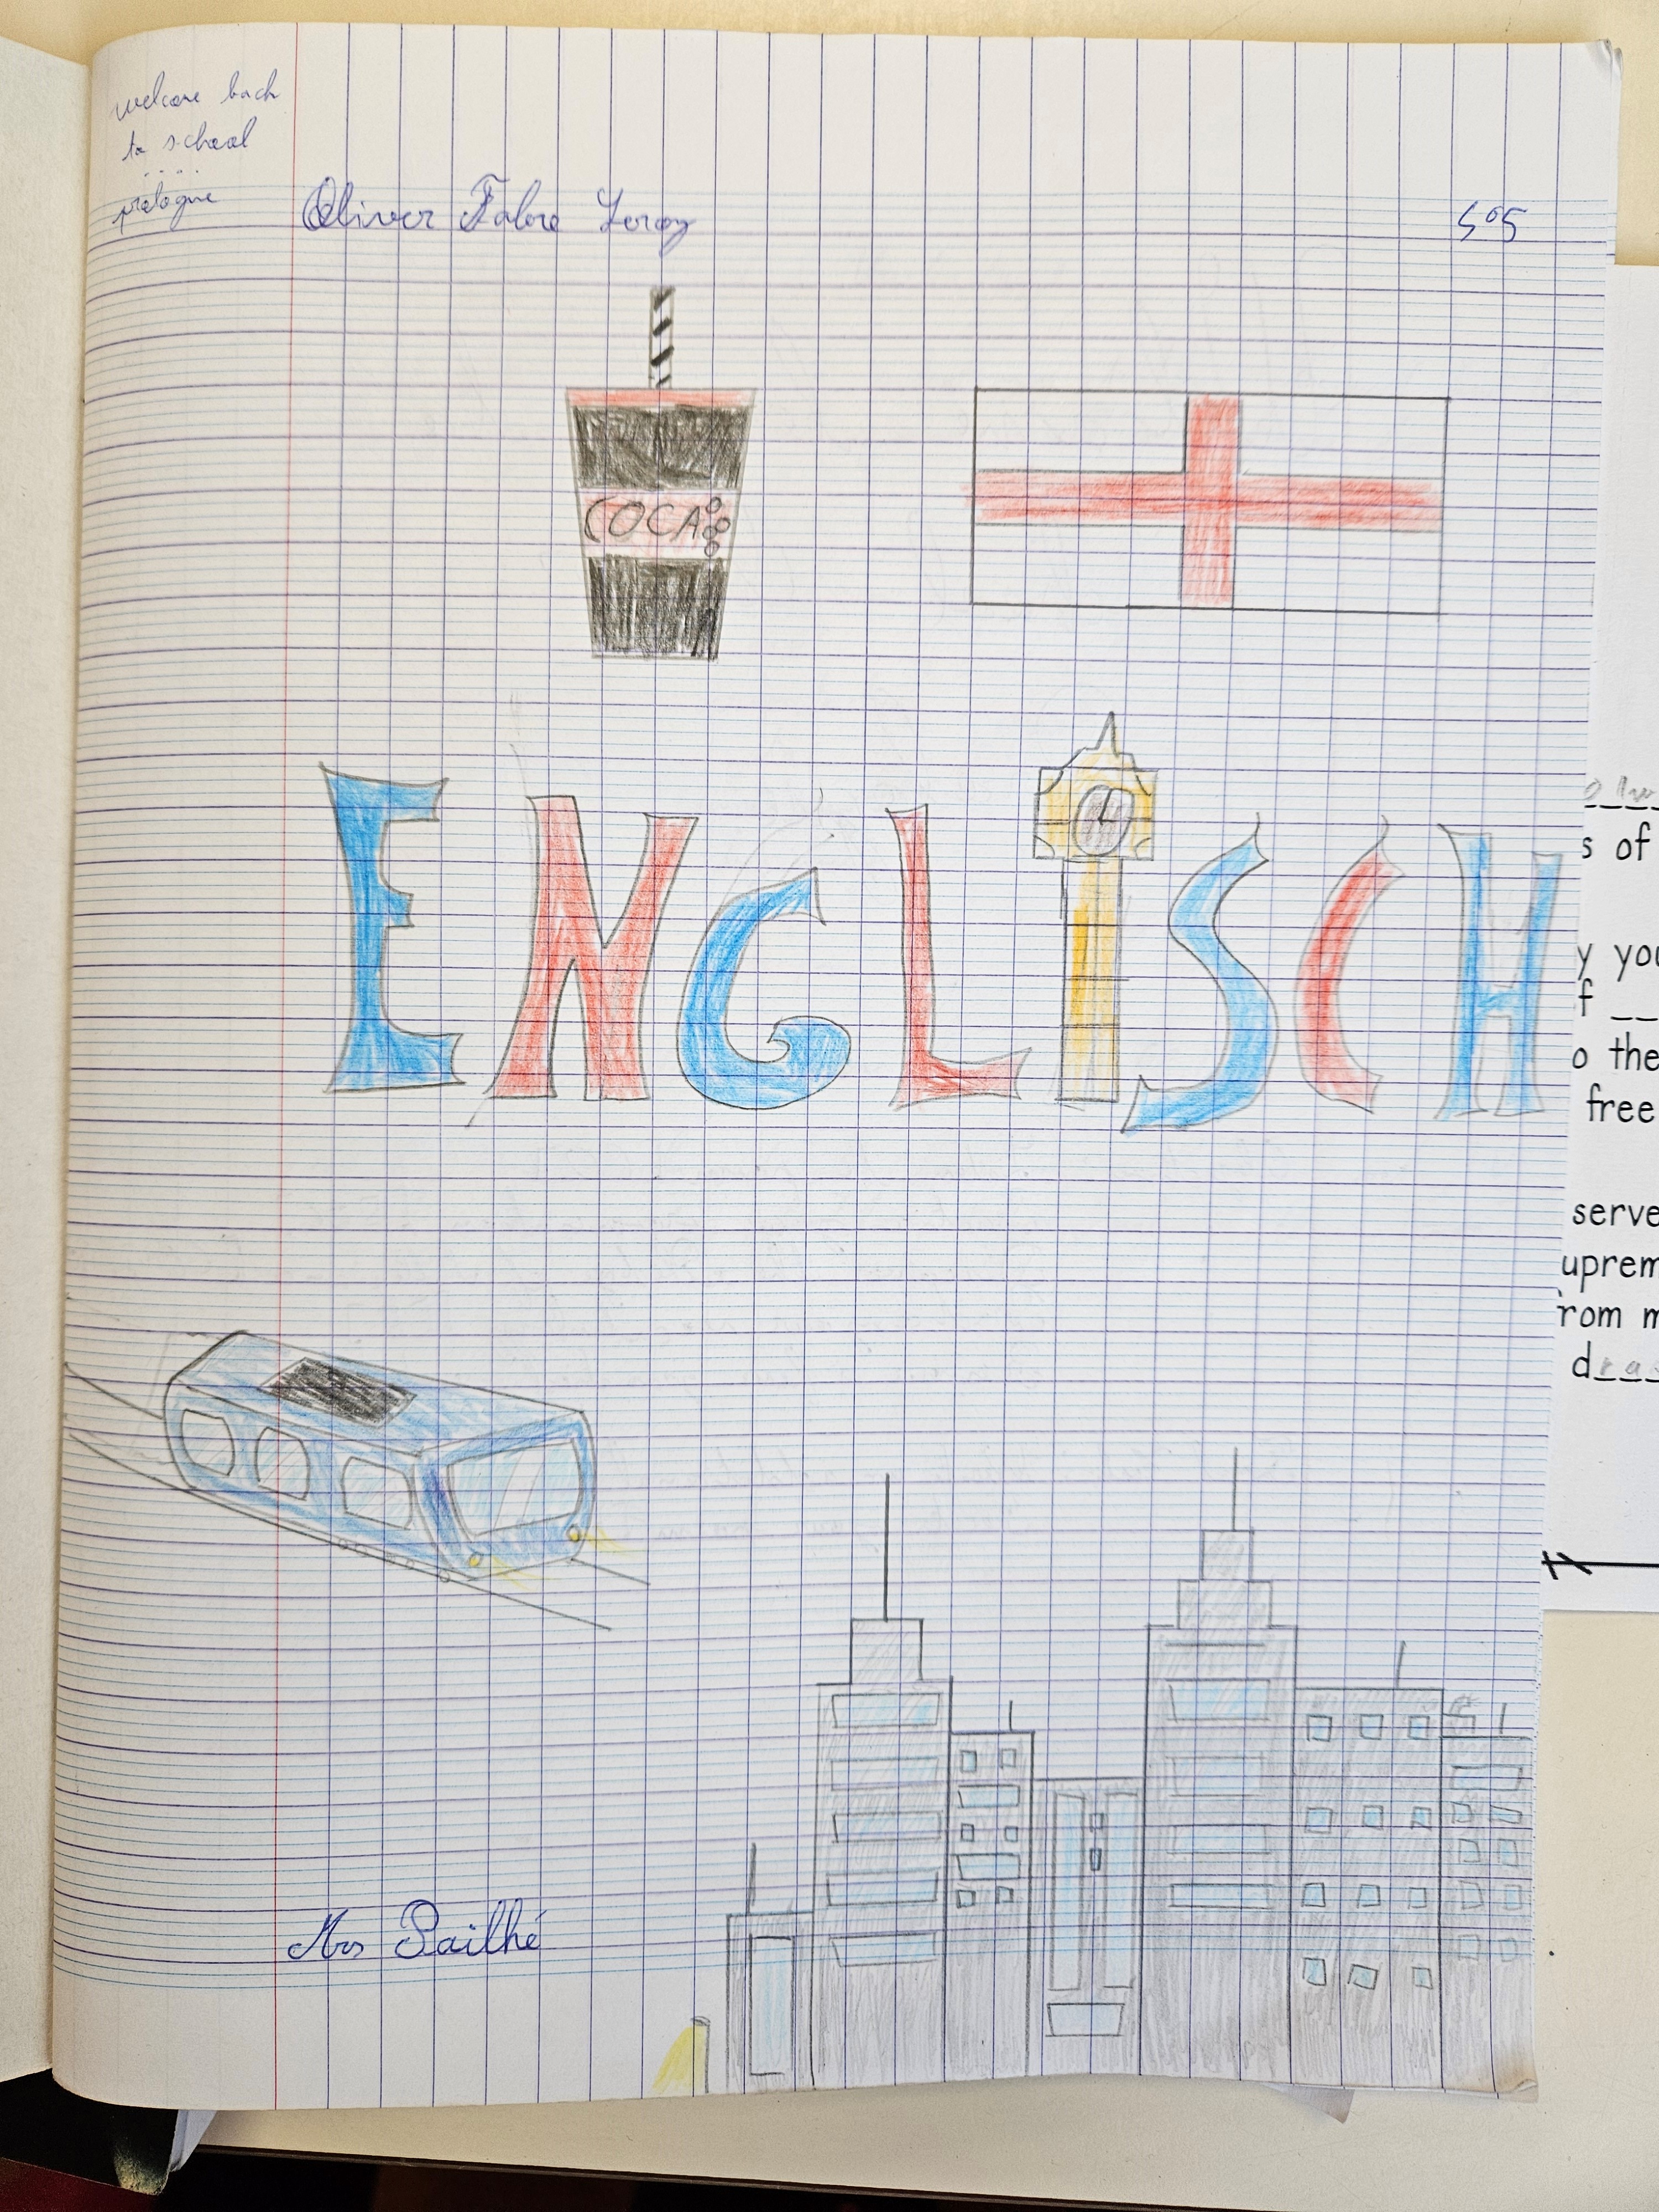 welcome back
to school
....
prologue
Oliver Fabre Leroy
S°5
COCA
ENGLISCH
Mrs Pailhé
s of
y you
f __
o the
free
serve
uprem
rom m
dras